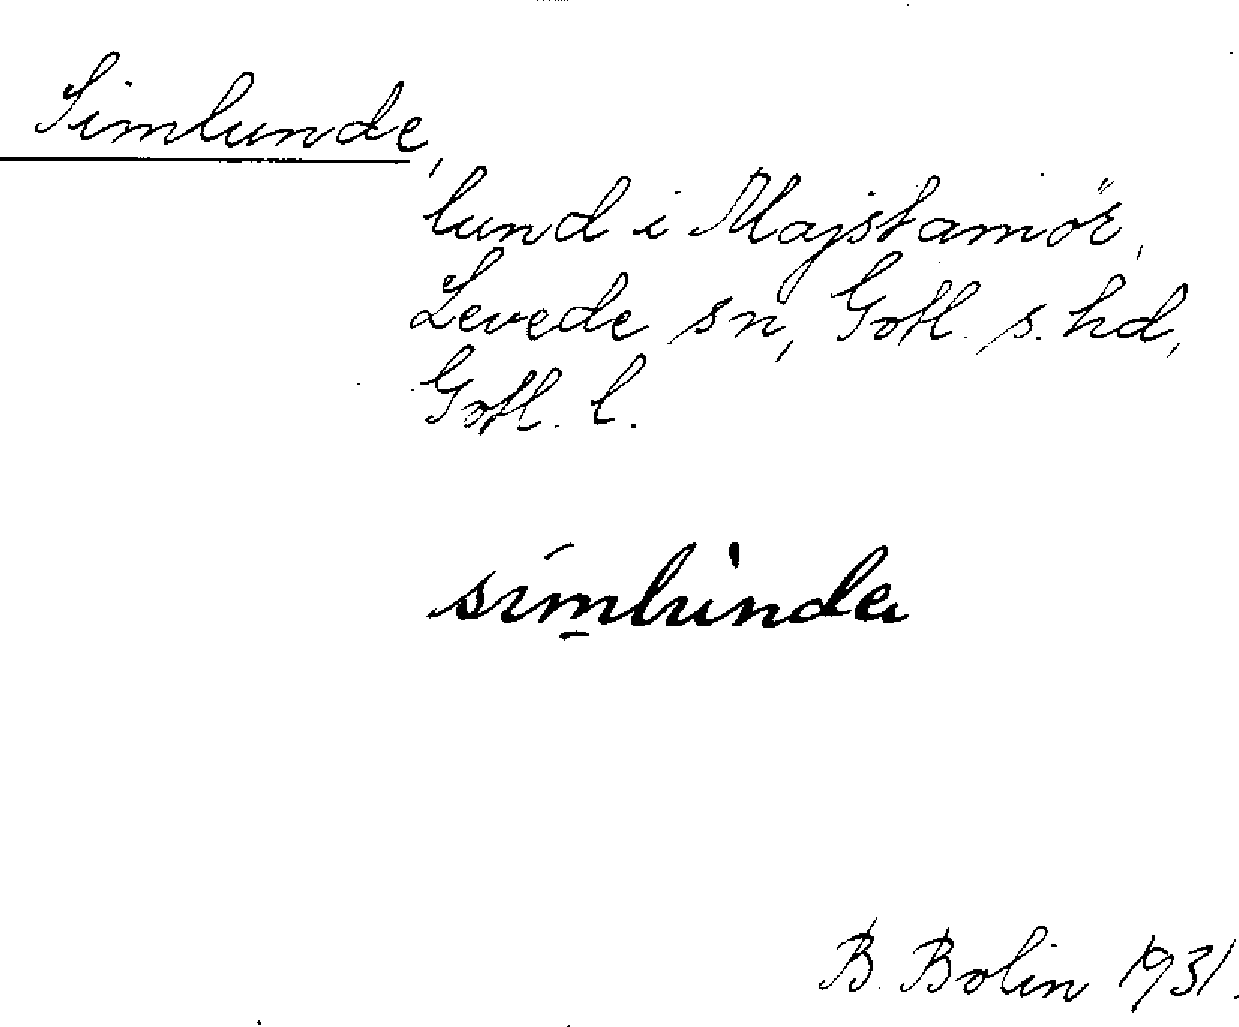 Simlunde,
lund i Majstamör,
Levede sn, Gotl. s. hd,
Gotl. l.
simlunda
B. Bolin 1931.